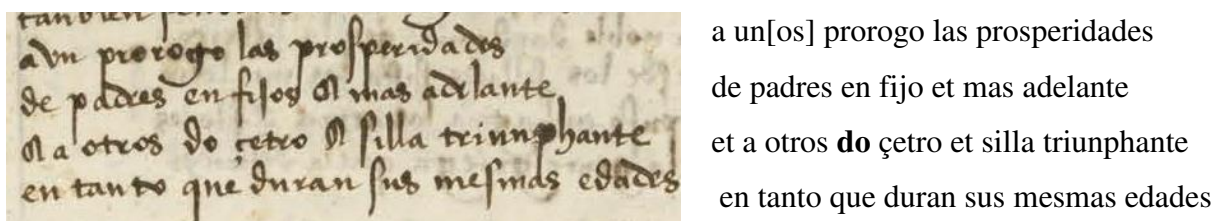 tanbien
a vn prorogo las prosperidades
de padres en fijos et mas adelante
et a otros do çetro et silla triunphante
en tanto que duran sus mesmas edades
a un[os] prorogo las prosperidades
de padres en fijo et mas adelante
et a otros do çetro et silla triunphante
en tanto que duran sus mesmas edades